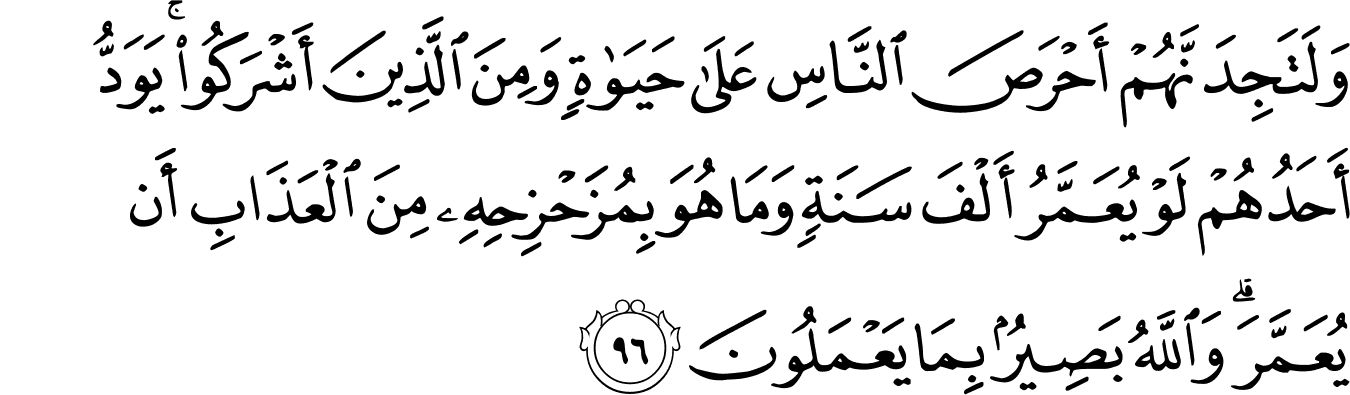 وَلَتَجِدَنَّهُمۡ أَحۡرَصَ ٱلنَّاسِ عَلَىٰ حَيَوٰةٖ وَمِنَ ٱلَّذِينَ أَشۡرَكُواْۚ يَوَدُّ
أَحَدُهُمۡ لَوۡ يُعَمَّرُ أَلۡفَ سَنَةٖ وَمَا هُوَ بِمُزَحۡزِحِهِۦ مِنَ ٱلۡعَذَابِ أَن
يُعَمَّرَۗ وَٱللَّهُ بَصِيرُۢ بِمَا يَعۡمَلُونَ ٩٦